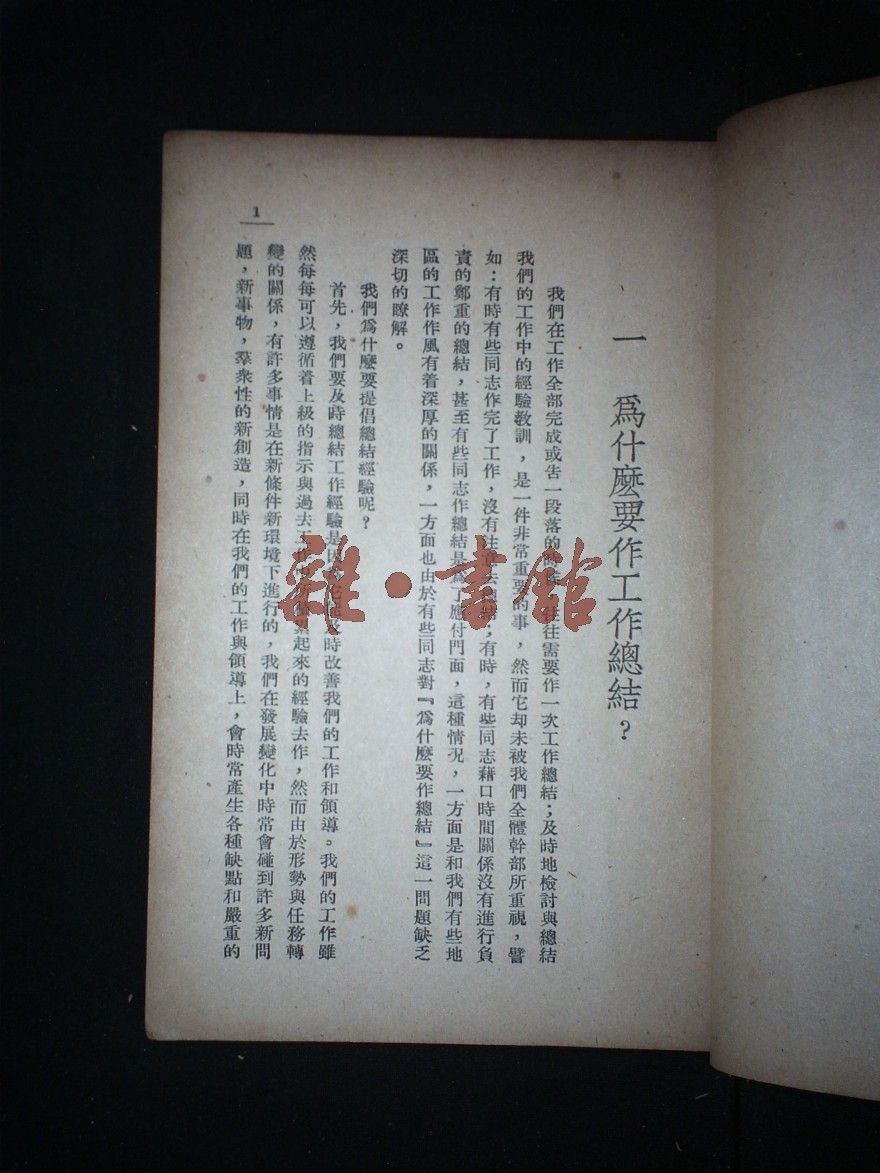 一 爲什麽要作工作總結？
我們在工作全部完成或告一段落的時候，往往需要作一次工作總結；及時地檢討與總結
我們的工作中的經驗教訓，是一件非常重要的事，然而它却未被我們全體幹部所重視，譬
如：有時有些同志作完了工作，沒有注意去總結；有時，有些同志藉口時間關係沒有進行負
責的鄭重的總結，甚至有些同志作總結是爲了應付門面，這種情況，一方面是和我們有些地
區的工作作風有着深厚的關係，一方面也由於有些同志對『爲什麽要作總結』這一問題缺乏
深切的瞭解。
我們爲什麽要提倡總結經驗呢？
首先，我們要及時總結工作經驗是因爲它能及時改善我們的工作和領導。我們的工作雖
然每每可以遵循着上級的指示與過去工作中所積累起來的經驗去作，然而由於形勢與任務轉
變的關係，有許多事情是在新條件新環境下進行的，我們在發展變化中時常會碰到許多新問
題，新事物，羣衆性的新創造，同時在我們的工作與領導上，會時常產生各種缺點和嚴重的
1
雜·書館